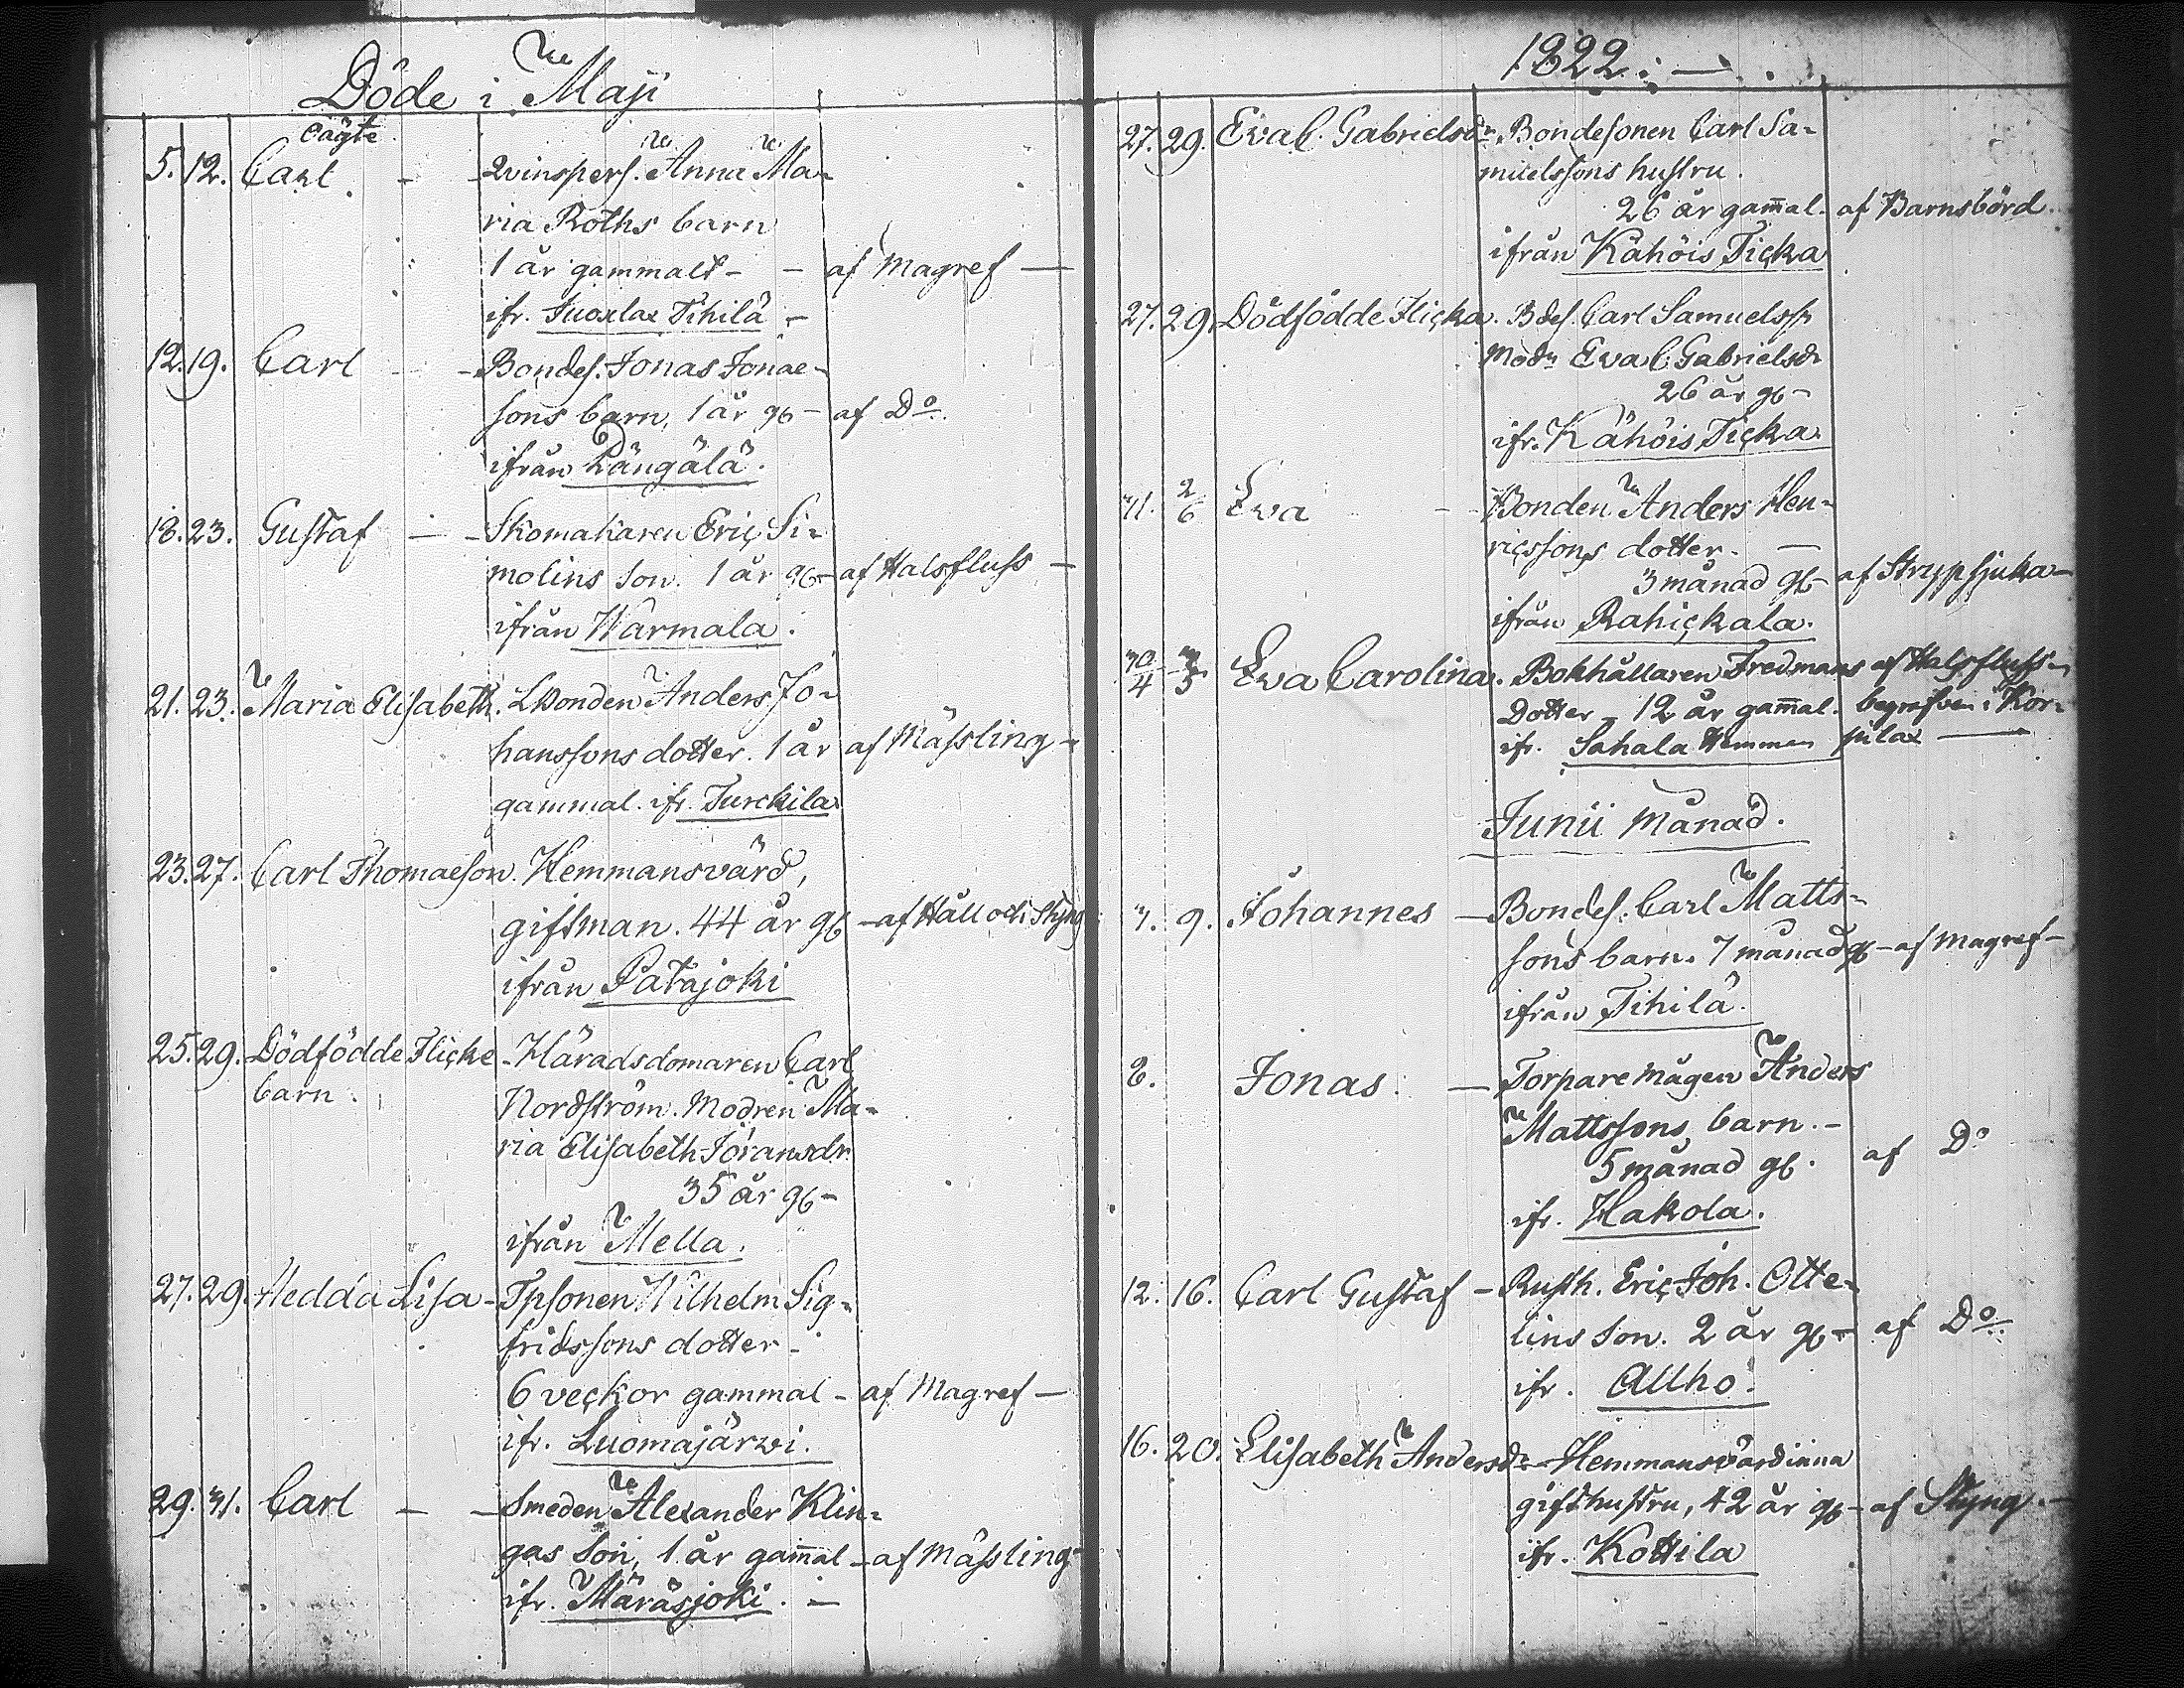 Döde i Maji
5. 12. oägte Carl. - - Qvinspers. Anna Ma-
ria Roths barn
1 år gammalt - - af Magref —
ifr. Tihilä -
12. 19. Carl - - Bondes. Jonas Jonae-
sons barn, 1 år gl - af Do.
ifrån Längälä.
18. 23. Gustaf - - Skomakaren Eric Si-
molins Son. 1 år gl - af Halsfluss —
ifrån Warmala.
21. 23. Maria Elisabeth. LBonden Anders Jo-
hanssons dotter. 1 år af Mässling -
gammal. ifr. Turckila
23. 27. Carl Thomaeson. Hemmansvärd,
giftman. 44 år gl - af Håll och Styng
ifrån Patajoki
25. 29. Dödfödde Flicke - Häradsdomaren Carl
barn. Nordström. Modren Ma-
ria Elisabeth Göransdr.
35 år gl -
ifrån Mella.
27. 29. Hedda Lisa - Tpsonen Wilhelm Sig-
fridssons dotter -
6 veckor gammal - af Magref —
ifr. Luomajärwi.
29. 31. Carl - - Smeden Alexander Klin-
gas Son, 1 år gam̄al - af Mässling -
ifr. Märäsjoki. -
1822. : - .
27. 29. Eva C. Gabrielsdr. Bondesonen Carl Sa-
muelssons hustru.
26 år gam̄al. af Barnsbörd.
ifrån Kähöis Ticka
27. 29. Dödfödde Flicka. Bdes. Carl Samuelss.
Modr Eva C. Gabrielsdr
26 år gl -
ifr. Kähöis Ticka.
31. 2/6 Eva - - Bonden Anders Hen-
ricssons dotter. —
3 månad gl - af Strypsjuka -
ifrån Rahickala.
30/4 3/5 Eva Carolina. Bokhållaren Fredmans af Halsfluss -
Dotter - 12 år gam̄al. begrafven i Kor-
ifr. Sahala Hemman pilax —
Junii Månad.
3. 9. Johannes - Bondes. Carl Matts-
sons barn. 7 månad gl - af Magref -
ifrån Tihilä.
8. Jonas. — Torparemågen Anders
Mattssons barn. -
5 månad gl. af Do
ifr. Hakola.
12. 16. Carl Gustaf - Rusth. Eric Joh. Otte-
lins Son. 2 år gl - af Do.
ifr. Allho.
16. 20. Elisabeth Andersdr - Hemmansvärdinna
gifthustru, 42 år gl - af Styng. -
ifr. Kottila